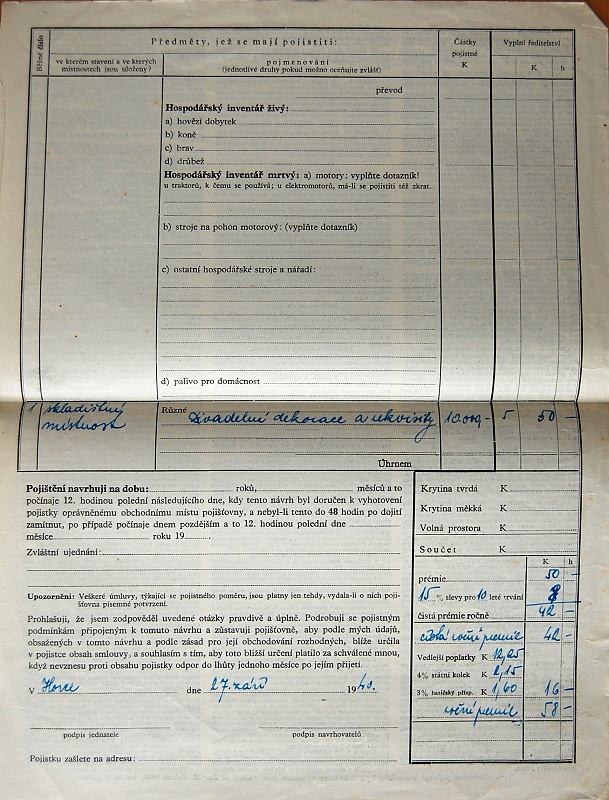 Běžné číslo
Předměty, jež se mají pojistiti:
Částky
pojistné
K
Vyplní ředitelství
K h
ve kterém stavení a ve kterých
místnostech jsou uloženy?
pojmenování
(jednotlivé druhy pokud možno oceňujte zvlášť)
převod
Hospodářský inventář živý:
a) hovězí dobytek
b) koně
c) brav
d) drůbež
Hospodářský inventář mrtvý: a) motory: vyplňte dotazník!
u traktorů, k čemu se používá; u elektromotorů, má-li se pojistiti též zkrat.
b) stroje na pohon motorový: (vyplňte dotazník)
c) ostatní hospodářské stroje a nářadí:
d) palivo pro domácnost
1 skladištný
místnost
Různé Divadelní dekorace a rekvisity 10.000,- 5 50 -
Úhrnem
Pojištění navrhuji na dobu: roků, měsíců a to
počínaje 12. hodinou polední následujícího dne, kdy tento návrh byl doručen k vyhotovení
pojistky oprávněnému obchodnímu místu pojišťovny, a nebyl-li tento do 48 hodin po dojití
zamítnut, po případě počínaje dnem pozdějším a to 12. hodinou polední dne
měsíce roku 19
Zvláštní ujednání:
Upozornění: Veškeré úmluvy, týkající se pojistného poměru, jsou platny jen tehdy, vydala-li o nich poji-
šťovna písemné potvrzení.
Prohlašuji, že jsem zodpověděl uvedené otázky pravdivě a úplně. Podrobuji se pojistným
podmínkám připojeným k tomuto návrhu a zůstavuji pojišťovně, aby podle mých údajů,
obsažených v tomto návrhu a podle zásad pro její obchodování rozhodných, blíže určila
v pojistce obsah smlouvy, a souhlasím s tím, aby toto bližší určení platilo za schválené mnou,
když nevznesu proti obsahu pojistky odpor do lhůty jednoho měsíce po jejím přijetí.
V Horce dne 27. září 1940.
podpis jednatele podpis navrhovatelů
Pojistku zašlete na adresu:
Krytina tvrdá K
Krytina měkká K
Volná prostora K
Součet K
K h
prémie 50 -
15 % slevy pro 10 leté trvání 8
čistá prémie ročně 42 -
čistá roční premie 42 -
Vedlejší poplatky K 12,25
4% státní kolek K 2,15
3% hasičský přísp. K 1,60 16 -
roční premie 58 -